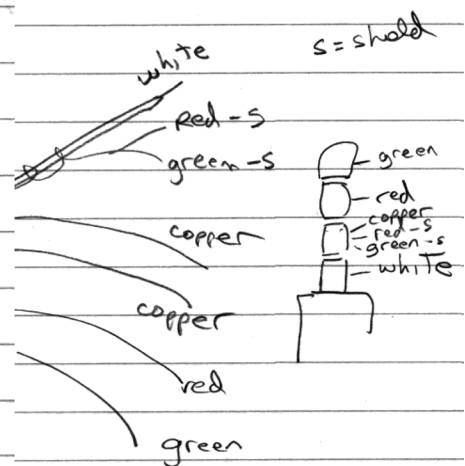 white
s = shold
Red-s
green-s
copper
copper
red
green
green
red
copper
red-s
green-s
white